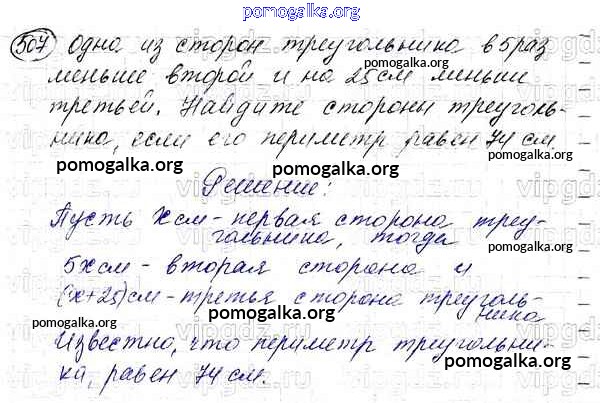 pomogalka.org
507 Одна из сторон треугольника в 5 раз
меньше второй и на 25 см меньше
третьей. Найдите стороны треуголь-
ника, если его периметр равен 74 см.
pomogalka.org pomogalka.org
Решение:
Пусть x см - первая сторона треу-
гольника, тогда
pomogalka.org pomogalka.org
5x см - вторая сторона и
(x+25) см - третья сторона треуголь-
ника
pomogalka.org pomogalka.org
Известно, что периметр треугольни-
ка, равен 74 см.
pomogalka.org pomogalka.org